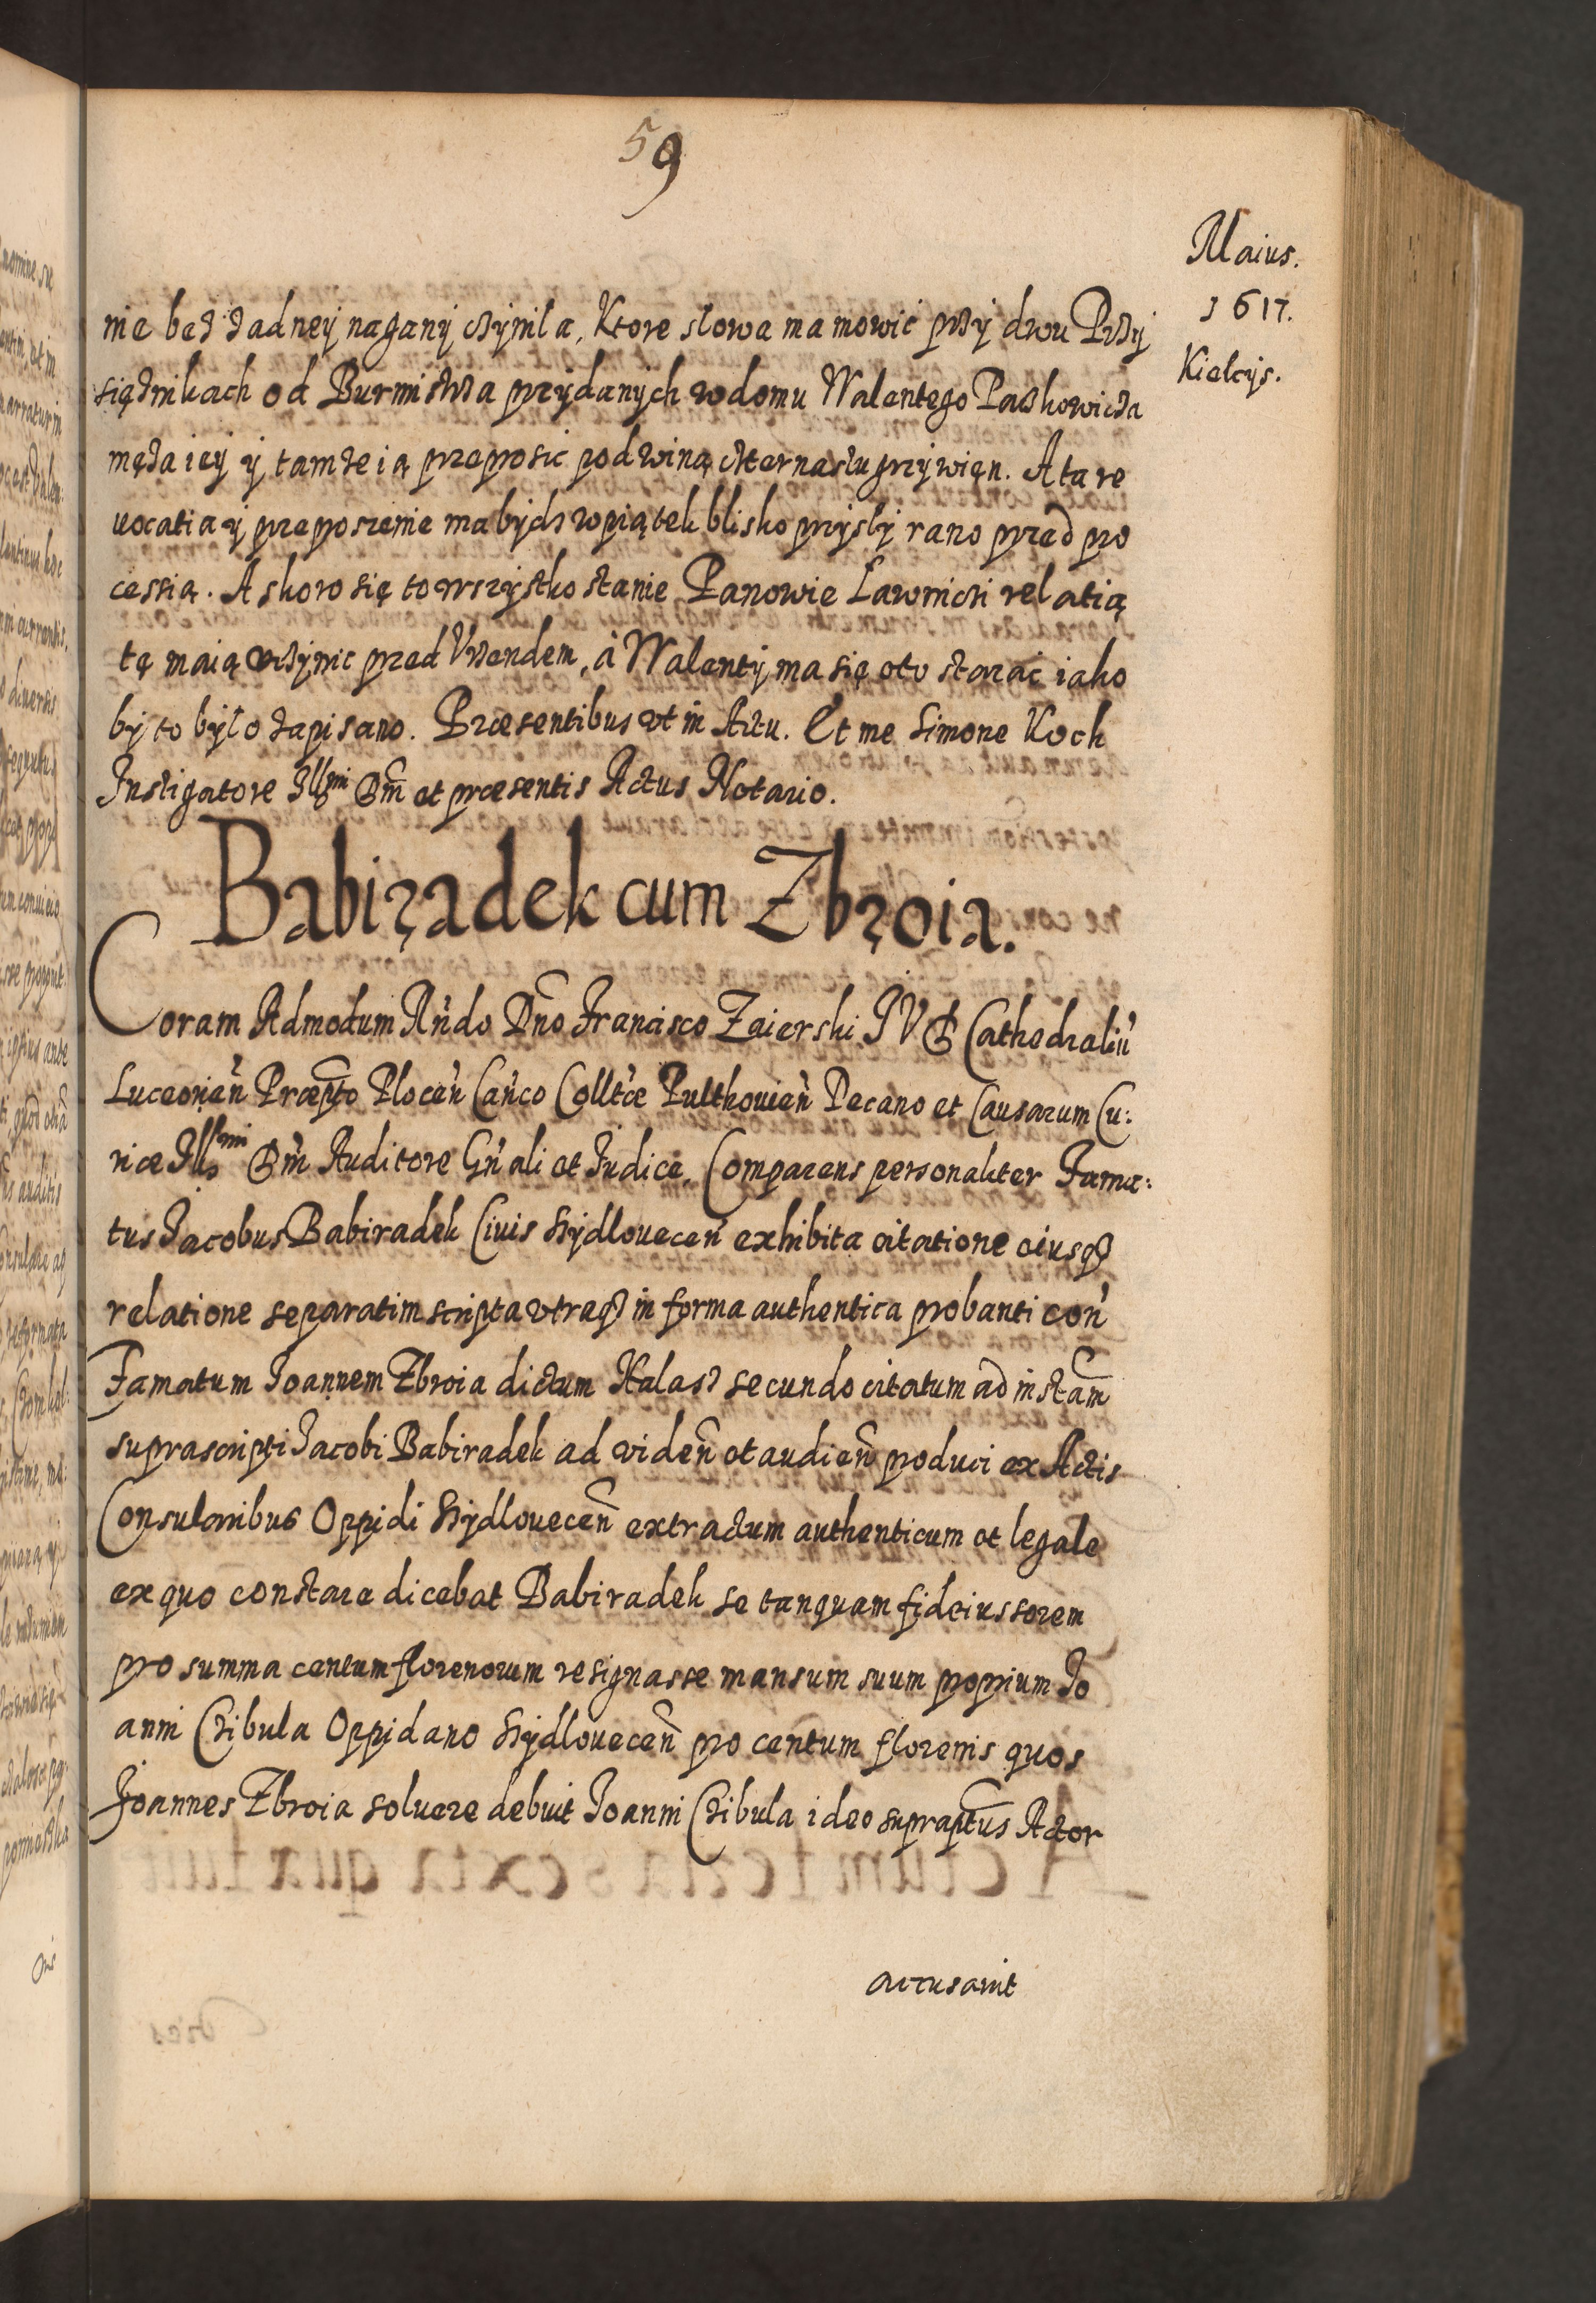 59
Maius.
1617.
Kielcijs.
nie bez żadneÿ naganÿ czÿniła, Ktore słowa ma mowic przÿ dwu Przÿ
siężnikach od Burmistrza przÿdanÿch w domu Walentego Paszkowicza
męża ieÿ ÿ tamże ią przeprosic pod winą czternastu grzÿwięn. A ta re
uocatia ÿ przeproszenie ma bÿdz w piątek blisko przÿslÿ rano przed pro
cessią. A skoro się to wszÿstko stanie Panowie Ławnicÿ relatią
tę maią uczÿnic przed Vrzendem, à Walentÿ ma się o to starac iako
bÿ to bÿło zapisano. Præsentibus vt in Actu. Et me Simone Koch
Instigatore Illmi Dni et præsentis Actus Notario.
Babiradek cum Zbroia.
Coram Admodum Rndo Dno Francisco Zaierski IVD Cathedraliu
Luceorien Præpto Plocen Canco Colltæ Pulthouien Decano et Causarum Cu:
riæ Illmi Dni Auditore Gnali et Iudice, Comparens personaliter Fama:
tus Iacobus Babiradek Ciuis Szÿdlouecen exhibita citatione eiusq3
relatione separatim scripta vtraq3 in forma authentica probanti con
Famatum Ioannem Zbroia dictum Halas3 secundo citatum ad instam
suprascripti Iacobi Babiradek ad viden et audien produci ex Actis
Consularibus Oppidi Szÿdlouecen extractum authenticum et legale
ex quo constare dicebat Babiradek se tanquam fideiussorem
pro summa centum florenorum resignasse mansum suum proprium Io
anni Czibula Oppidano Szÿdlouecen pro centum florenis quos
Ioannes Zbroia soluere debuit Ioanni Czibula ideo supraptus Actor
accusauit